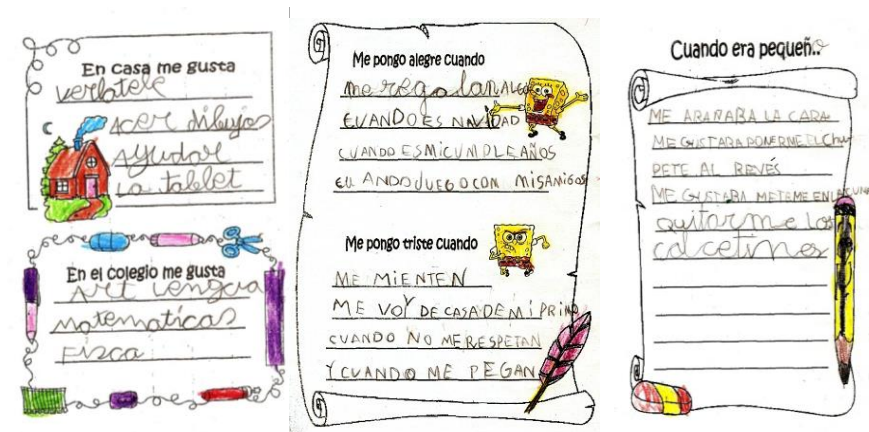 En casa me gusta
verlatele
Acer dibujos
Ayudar
La tablet
En el colegio me gusta
Art Lengua
Matematicas
Fisca
Me pongo alegre cuando
me regalan ALGO
CUANDO ES NAVIDAD
CUANDO ESMICUMPLEAÑOS
CUANDO JUEGO CON MISAMIGOS
Me pongo triste cuando
ME MIENTEN
ME VOY DE CASA DE MI PRIMO
CUANDO NO ME RESPETAN
Y CUANDO ME PEGAN
Cuando era pequeño..
ME ARAÑABA LA CARA
ME GUSTABA PONERME EL Chu
PETE AL REVÉS
ME GUSTABA METEME EN LA CUNA
quitarme los
calcetines